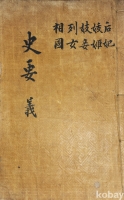 后妃
妓妾
列女
相國
史要
義
kobay